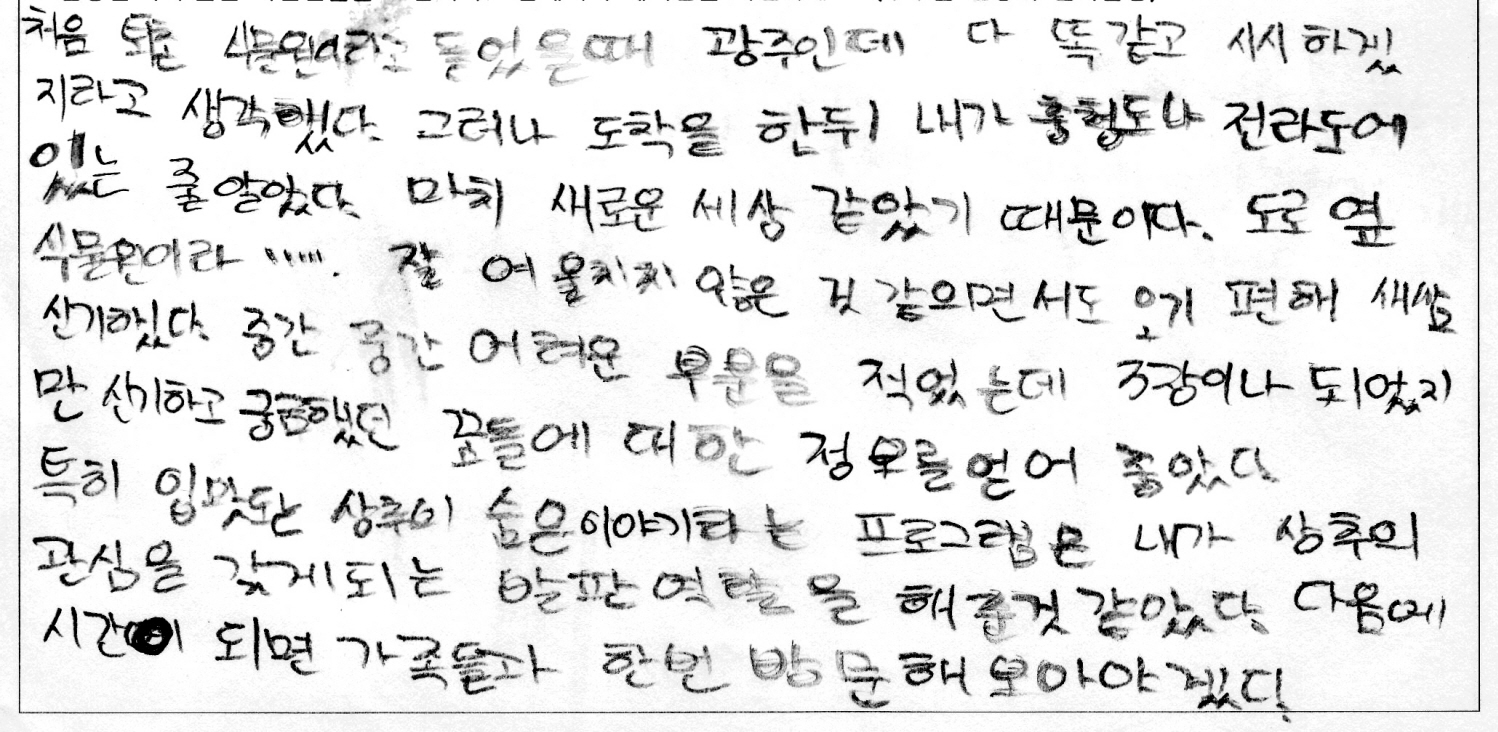 처음 퇴촌 식물원이라고 들었을때 광주인데 다 똑같고 시시하겠
지라고 생각했다. 그러나 도착을 한뒤 내가 충청도나 전라도에
있는 줄 알았다. 마치 새로운 세상 같았기 때문이다. 도로 옆
식물원이라 ...... 잘 여울치지 않은 것 같으면서도 오기 편해 새삼
신기하였다. 중간 중간 어려운 부분을 적었는데 3장이나 되었지
만 신기하고 궁금했던 꽃들에 대한 정보를 얻어 좋았다.
특히 입맛도는 상추의 숨은이야기라는 프로그램은 내가 상추의
관심을 갖게되는 발판역할을 해준것 같았다. 다음에
시간이 되면 가족들과 한번 방문해 보아야겠다!